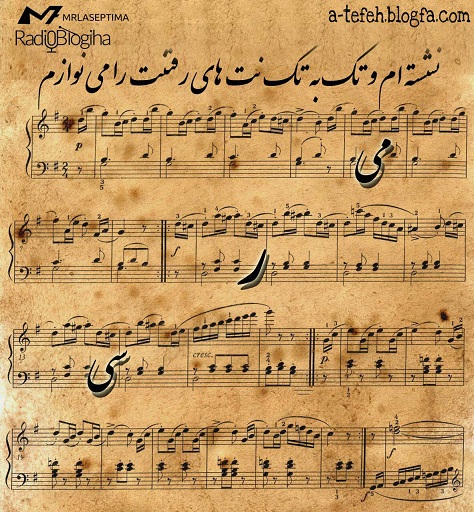 MRLASEPTIMA
a-tefeh.blogfa.com
RadioBlogiha
نشسته ام و تک به تک نت های رفتنت را می نوازم
می
ر
سی
cresc.